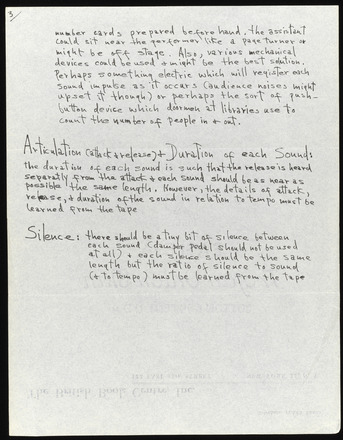 3
number cards prepared beforehand. The assistent
could sit near the performer like a page turner or
might be off stage. Also, various mechanical
devices could be used + might be the best solution.
Perhaps something electric which will register each
sound impulse as it occurs (audience noises might
upset it though) or perhaps the sort of push-
button device which doormen at libraries use to
count the number of people in + out.
Articulation (attack + release) + Duration of each Sound:
the duration of each sound is such that the release is heard
separately from the attack + each sound should be as near as
possible the same length. However, the details of attack,
release, + duration of the sound in relation to tempo must be
learned from the tape
Silence: there should be a tiny bit of silence between
each sound (damper pedal should not be used
at all) + each silence should be the same
length but the ratio of silence to sound
(+ to tempo) must be learned from the tape
The British Book Centre, Inc.